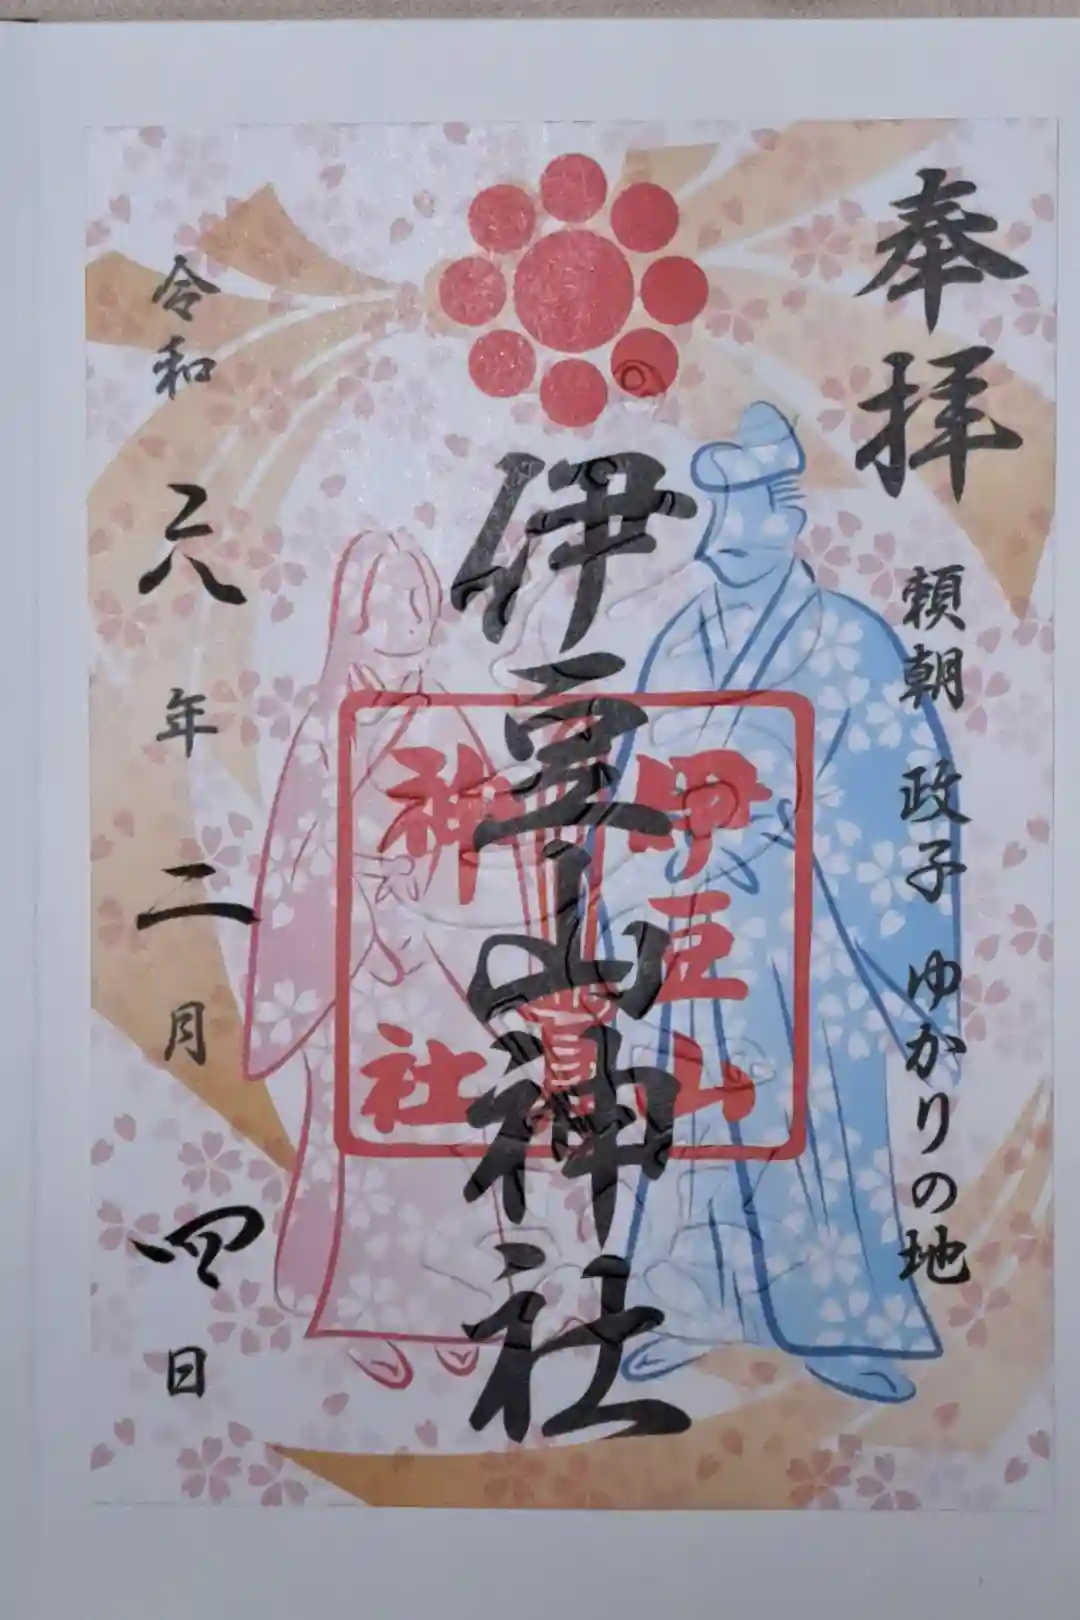 奉拝
頼朝 政子 ゆかりの地
伊豆山神社
伊豆山
神社
令和六年二月四日